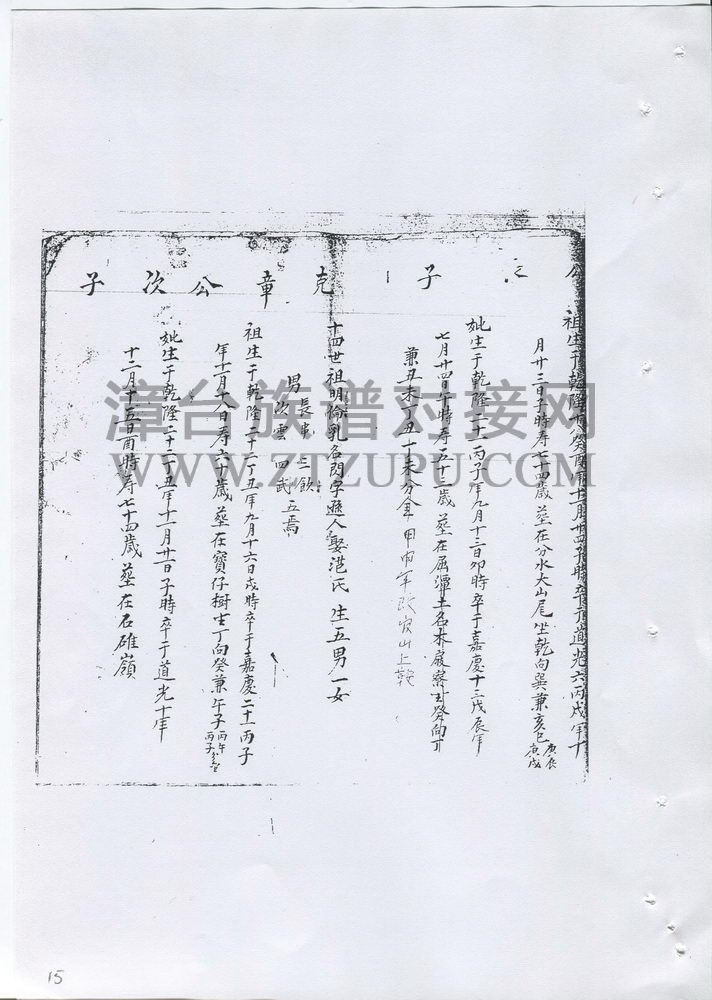 公之子
克章公次子
祖生于乾隆癸酉年十二月廿四時卒于道光六丙戌年十
月廿三日子時寿七十四歲葬在分水大山尾坐乾向巽兼亥巳庚辰庚戌
妣生于乾隆二十一丙子年九月十三日卯時卒于嘉慶十三戊辰年
七月廿四日子時寿五十三歲葬在屈潭土名木屐寮坐癸向丁
兼丑未丁丑丁未分金甲申年改安山上乾
十四世祖明倫乳名閃字遜人娶范氏生五男一女
男長串三欽
次雲四武五焉
祖生于乾隆二十二丁丑年九月十六日戌時卒于嘉慶二十一丙子
年十一月十八日寿六十歲葬在寶仔樹坐丁向癸兼午子丙午丙子分金
妣生于乾隆二十二丁丑年十一月廿一日子時卒于道光十年
十二月十五日酉時寿七十四歲葬在石碓嶺
漳台族谱对接网
WWW.ZTZUPU.COM
15